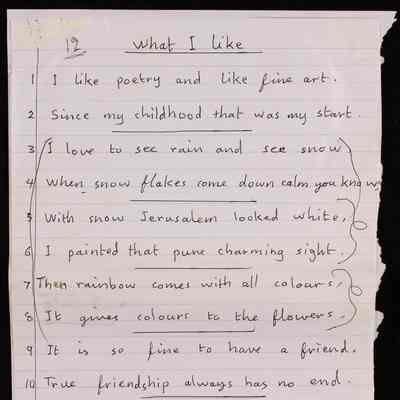 12 What I like
1 I like poetry and like fine art.
2 Since my childhood that was my start.
3 I love to see rain and see snow
4 When snow flakes come down calm you know
5 With snow Jerusalem looked white,
6 I painted that pure charming sight.
7 Then rainbow comes with all colours,
8 It gives colours to the flowers.
9 It is so fine to have a friend.
10 True friendship always has no end.